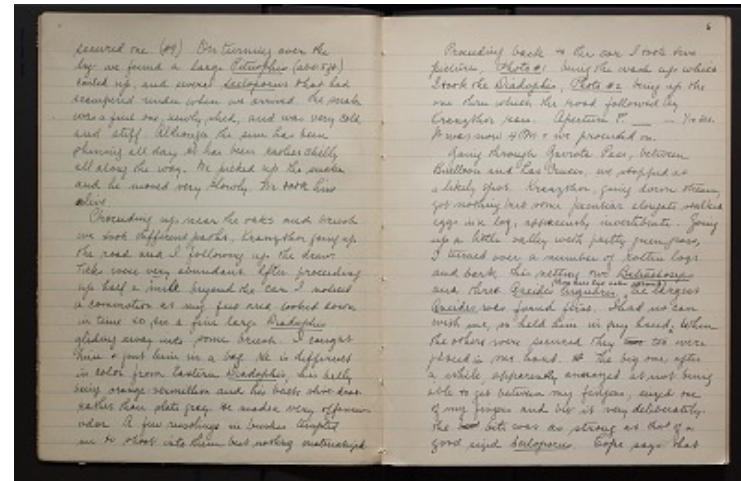 secured one (#9) On turning over the
log we found a large Pituophis (about 5 ft.)
coiled up, and several Sceloporus that had
scampered under when we arrived. The snake
was a fine one, newly shed, and was very cold
and stiff. Although the sun has been
shining all day it has been rather chilly
all along the way. We picked up the snake
and he moved very slowly. We took him
alive.
Proceeding up near the oaks and brush
we took different paths, Kranzthor going up
the road and I following up the draw.
Ticks were very abundant. After proceeding
up half a mile beyond the car I noticed
a commotion at my feet and looked down
in time to see a fine large Diadophis
gliding away into some brush. I caught
him & put him in a bag. He is different
in color from Eastern Diadophis, his belly
being orange-vermillion and his back olive
rather than slate gray. He made a very offensive
odor. A few rustlings in bushes tempted
me to shoot into them but nothing materialized
6
Proceeding back to the car I took two
pictures, Photo #1 being the wash up which
I took the Diadophis, Photo #2 being up the
one thru which the road followed by
Kranzthor runs. Aperture
It was now 4 PM & we proceeded on.
Going through Gaviota Pass, between
Buellton and Las Cruces, we stopped at
a likely spot. Kranzthor, going down stream,
got nothing but some peculiar elongate stalked
eggs in a log, apparently invertebrate. Going
up a little valley with pretty green grass,
I turned over a number of rotten logs
and bark, this netting two Batrachoseps
and three Aneides lugubris, the largest
Aneides was found first. I had no can
with me, so held him in my hand. When
the others were secured they too were
placed in one hand. The big one after
a while, apparently enraged at not being
able to get between my fingers, seized one
of my fingers and bit it very deliberately.
The bite was as strong as that of a
good sized Sceloporus. Cope says that